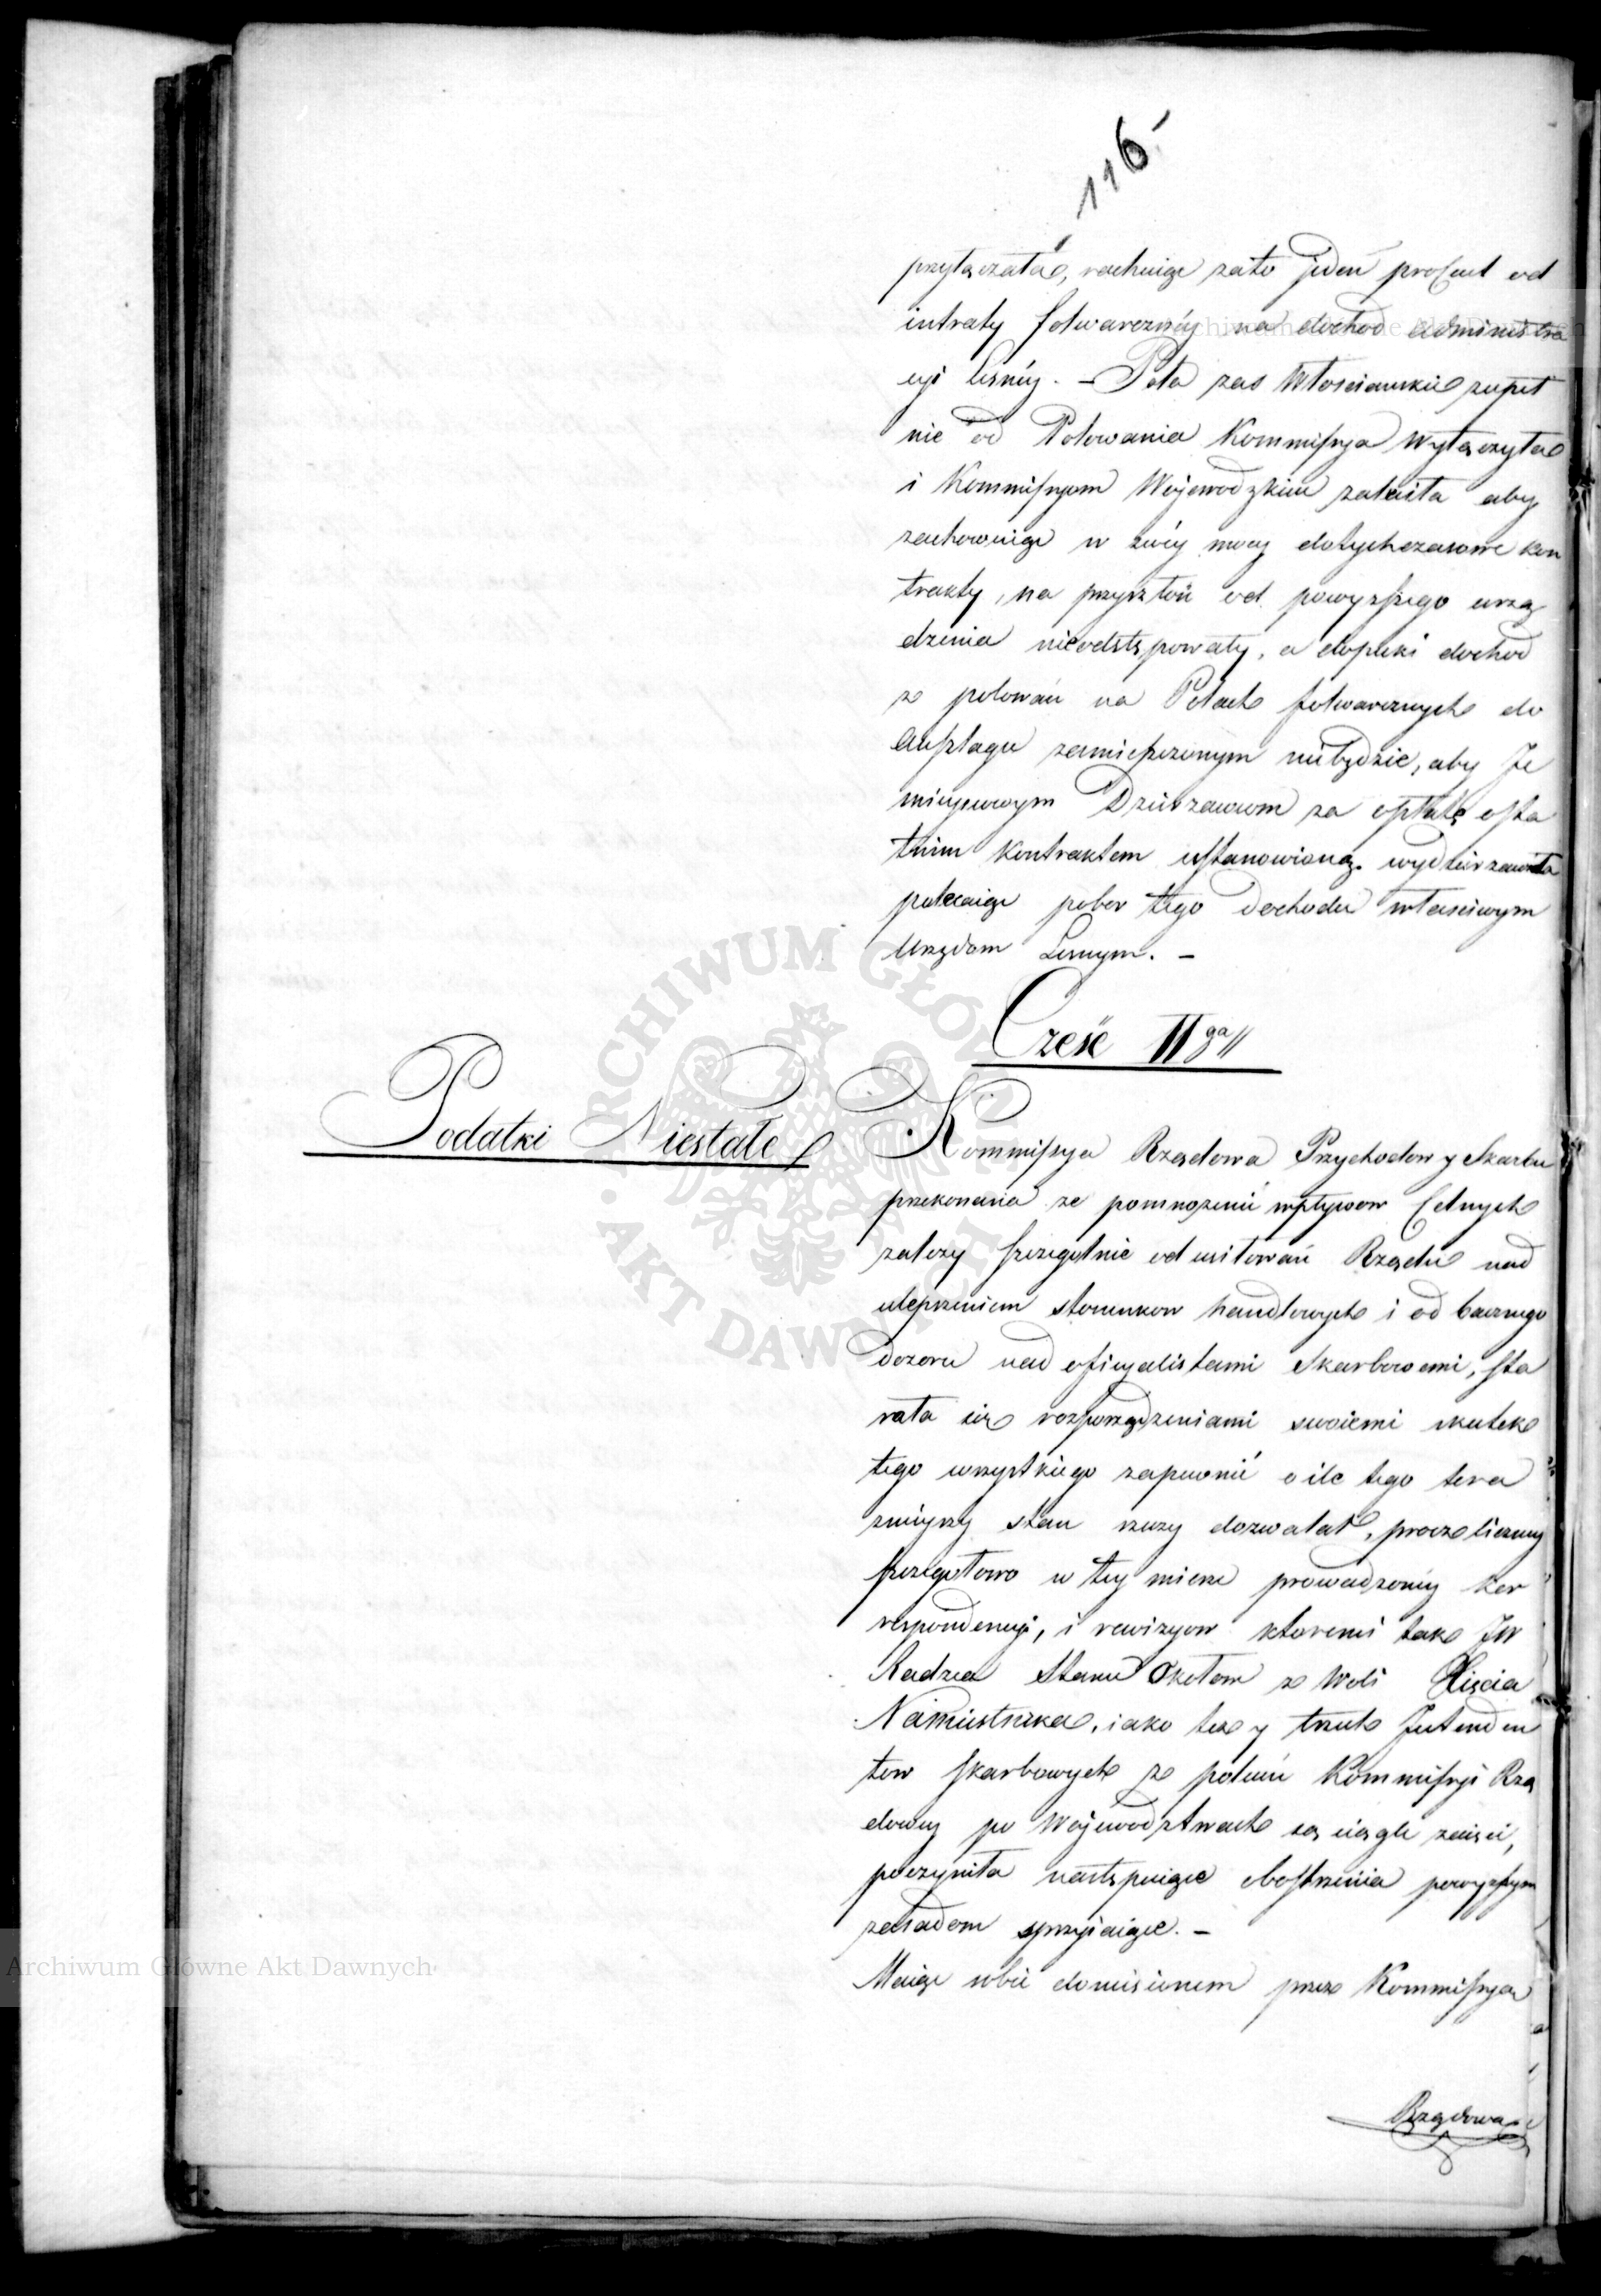 116.
przyłączała, rachuiąc zato jeden procent od
intraty folwarczney na dochod administra
cyi leśney. – Pola zas Włościańskie zupeł
nie od Polowania Kommissya wyłączyła
i Kommissyom Wojewodzkim zaleciła aby
zachowuiąc w swey mocy dotychczasowe kon
trakty, na przyszłość od powyższego urzą
dzenia nieodstępowały, a dopuki dochod
z polowań na Polach folwarcznych do
Anszlagu zamieszczonym niebędzie, aby Je
mieyscowym Dzierzawcom za opłatę osta
tnim kontraktem ustanowioną wydzierzawiła
polecaiąc pobor tego dochodu właściwym
Urzędom Leśnym. –
Cześć II ga
Podatki Niestałe
Kommissya Rządowa Przychodow y Skarbu
przekonana ze pomnozenie wpływow Celnych
zalezy szczegolnie od usiłowań Rządu nad
ulepszeniem stosunkow handlowych i od bacznego
dozoru nad oficyalistami Skarbowemi, sta
rała się rozporządzeniami swoiemi skutek
tego wszystkiego zapewnić o ile tego tera
znieyszy stan rzeczy dozwalał, procz liczney
szczegołowo w tey mierze prowadzoney kor
respondencyi, i rewizyow ktoremi tak JW
Radzca Stanu Okołow z Woli Xięcia
Namiestnika, iako tez y trzech Intenden
tow skarbowych z poleceń Kommissyi Rzą
dowey po Wojewodztwach są ciągle zaięci,
poczyniła następuiące obostrzenia powyższym
zasadom sprzyiaiące. –
Maiąc sobie doniesionem przez Kommissyą
Rządowa
Archiwum Główne Akt Dawnych
ARCHIWUM GŁÓWNE AKT DAWNYCH